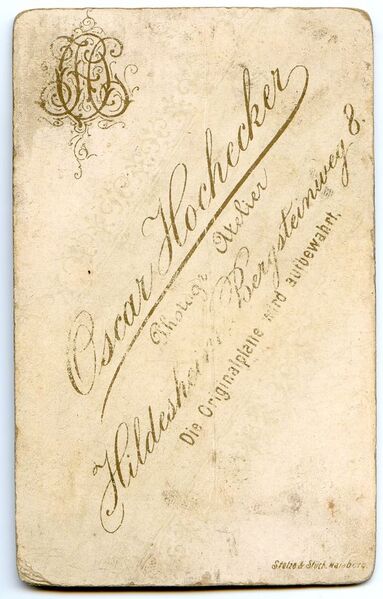 Oscar Hochecker
Photogr. Atelier
Hildesheim Bergsteinweg 8.
Die Originalplatte wird aufbewahrt.
Stolze & Stück, Hamburg.